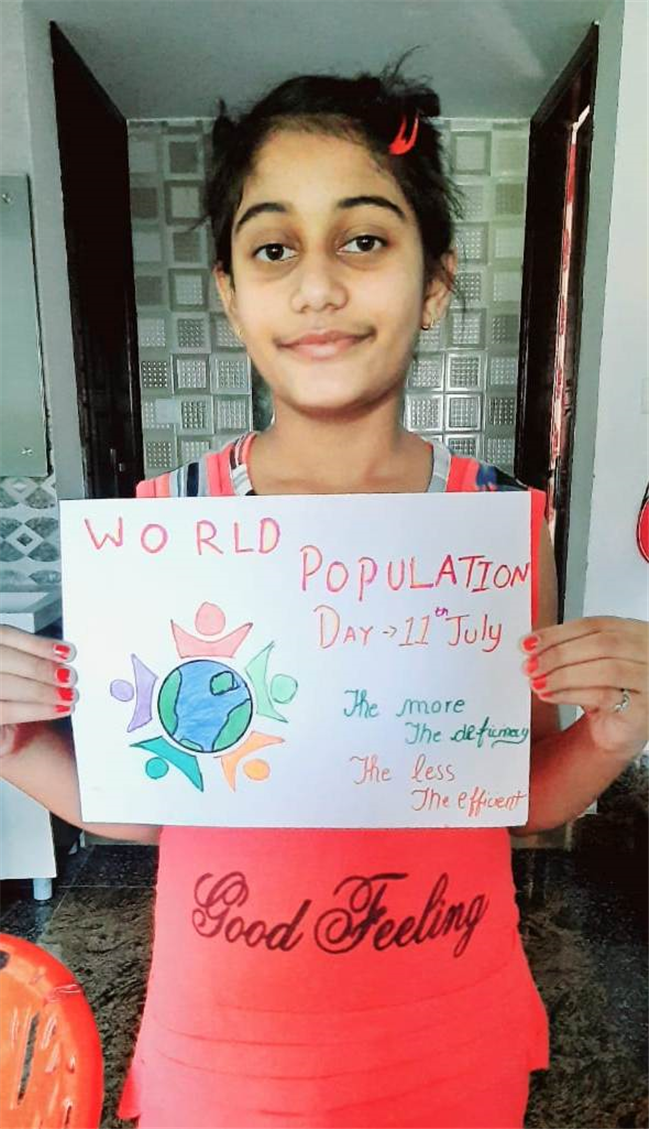 WORLD
POPULATION
DAY → 11th July
The more
The deficincy
The less
The efficent
Good Feeling